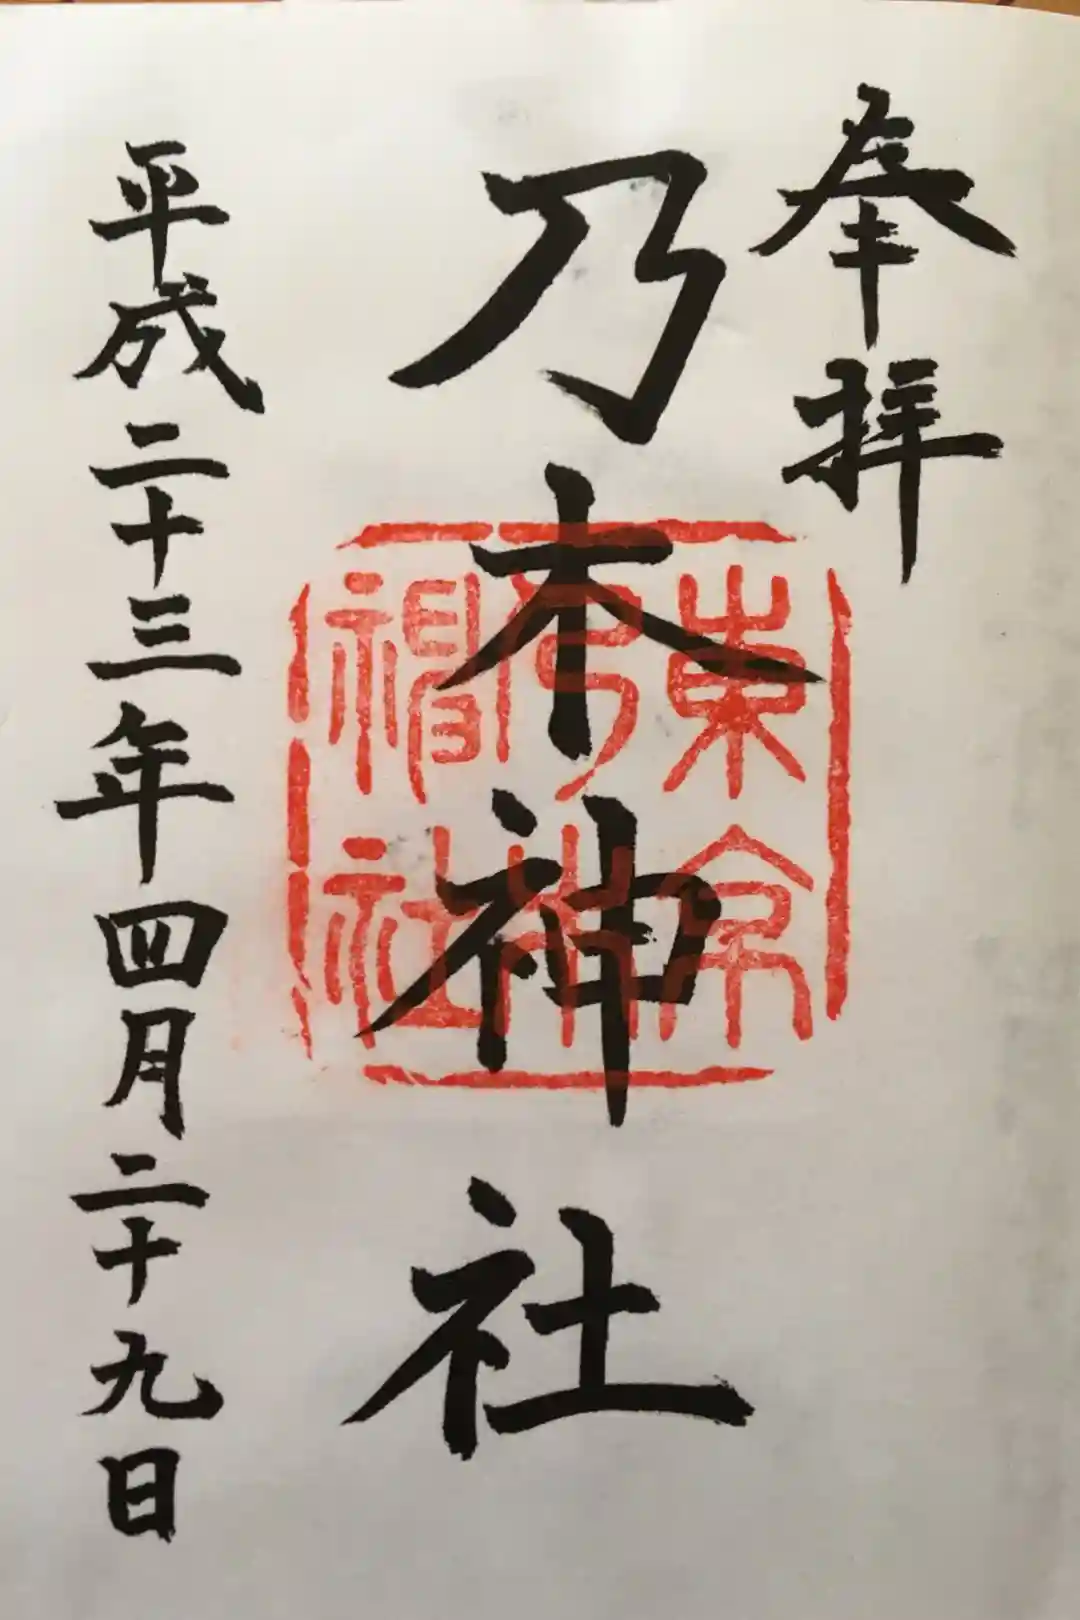 奉拝
乃木神社
東京
乃木
神社
平成二十三年四月二十九日